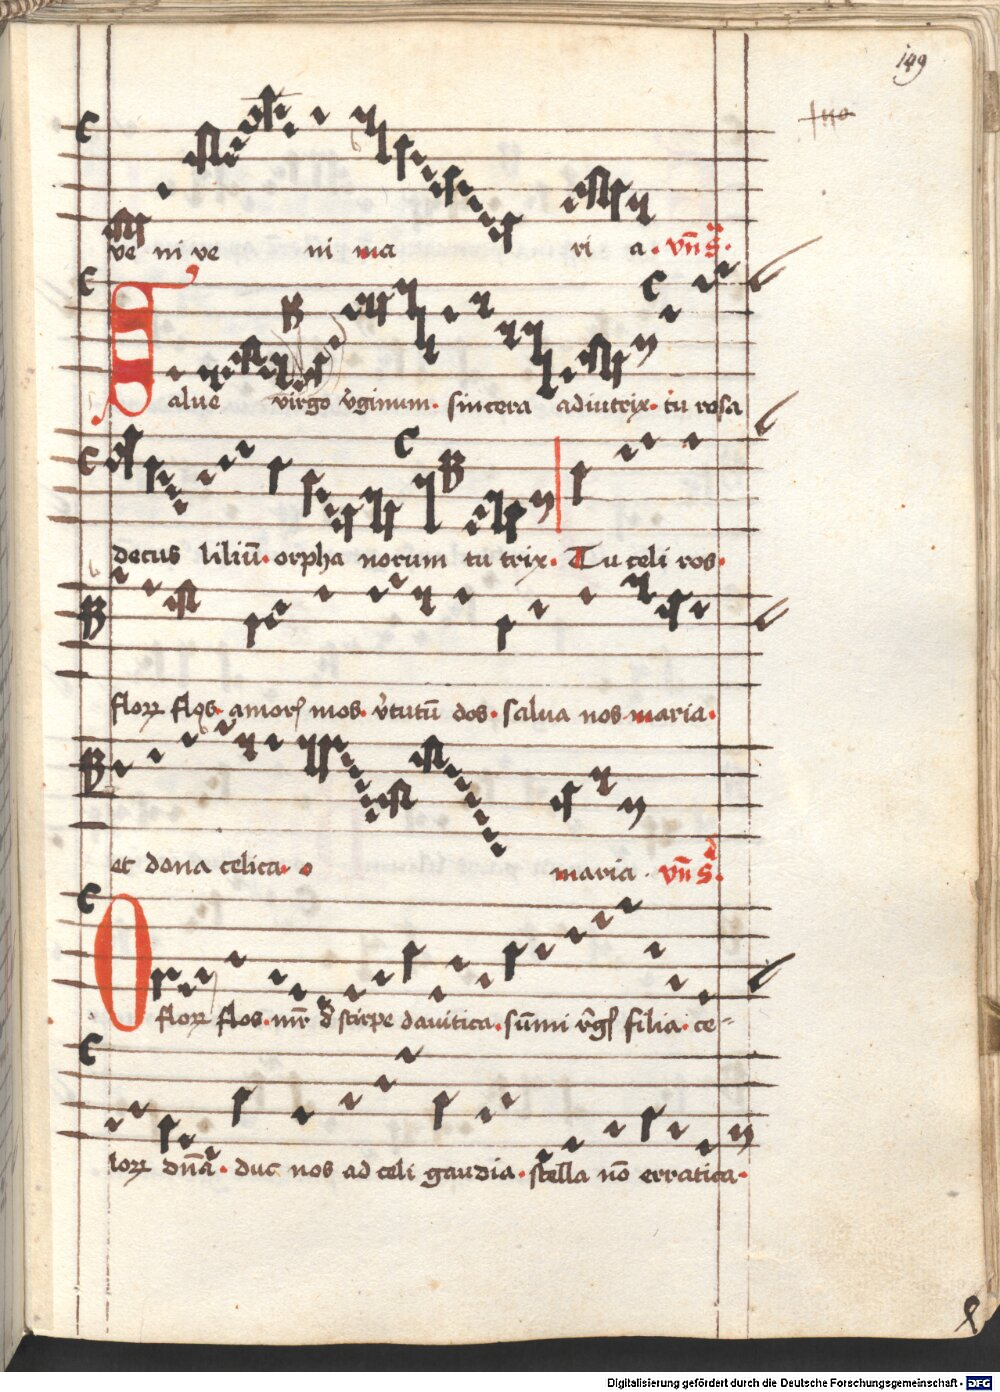 149
ve ni ve ni ma ri a. vn̄s.
Salve virgo v̓ginum. sincera adiutrix. tu rosa
decus liliū. orpha norum tu trix. Tu celi ros.
floꝝ flos. amoꝝ mos. v̓tutū dos. salva nos maria.
et dona celica. o maria. vn̄s.
O floꝝ flos. mr̄ d̄ stirpe davitica. sūmi filia. ce-
loꝝ dn̄a. duc nos ad celi gaudia. stella nō erratica.
Digitalisierung gefördert durch die Deutsche Forschungsgemeinschaft - DFG